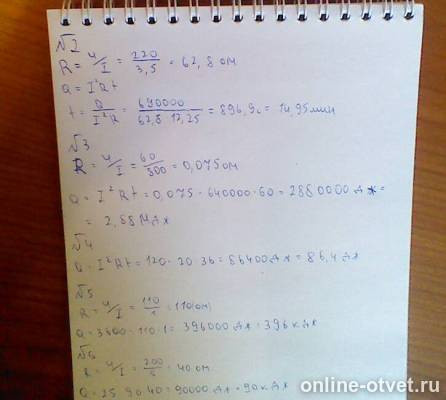 №2
R = U/I = 220/3,5 = 62,8 ом
Q = I²Rt
t = Q/I²R = 690000/62,8·12,25 = 896,9с = 14,95 мин
№3
R = U/I = 60/800 = 0,075 ом
Q = I²Rt = 0,075 · 640000 · 60 = 2880000 дж =
= 2,88 Мдж
№4
Q = I²Rt = 120 · 20 · 36 = 86400 дж = 86,4 дж
№5
R = U/I = 110/1 = 110 (ом)
Q = 3600 · 110 · 1 = 396000 дж = 396 кдж
№6
R = U/I = 200/5 = 40 ом
Q = 25 · 90 · 40 = 90000 дж = 90 кдж
online-otvet.ru